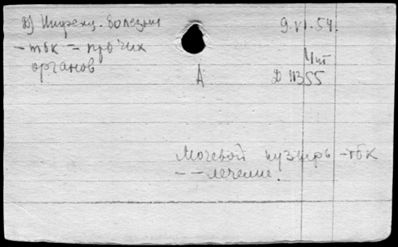 д) Инфекц. болезни 9.VI.54.
- тбк - прочих
органов
А Д 11355
Мочевой пузырь - тбк
- - лечение.